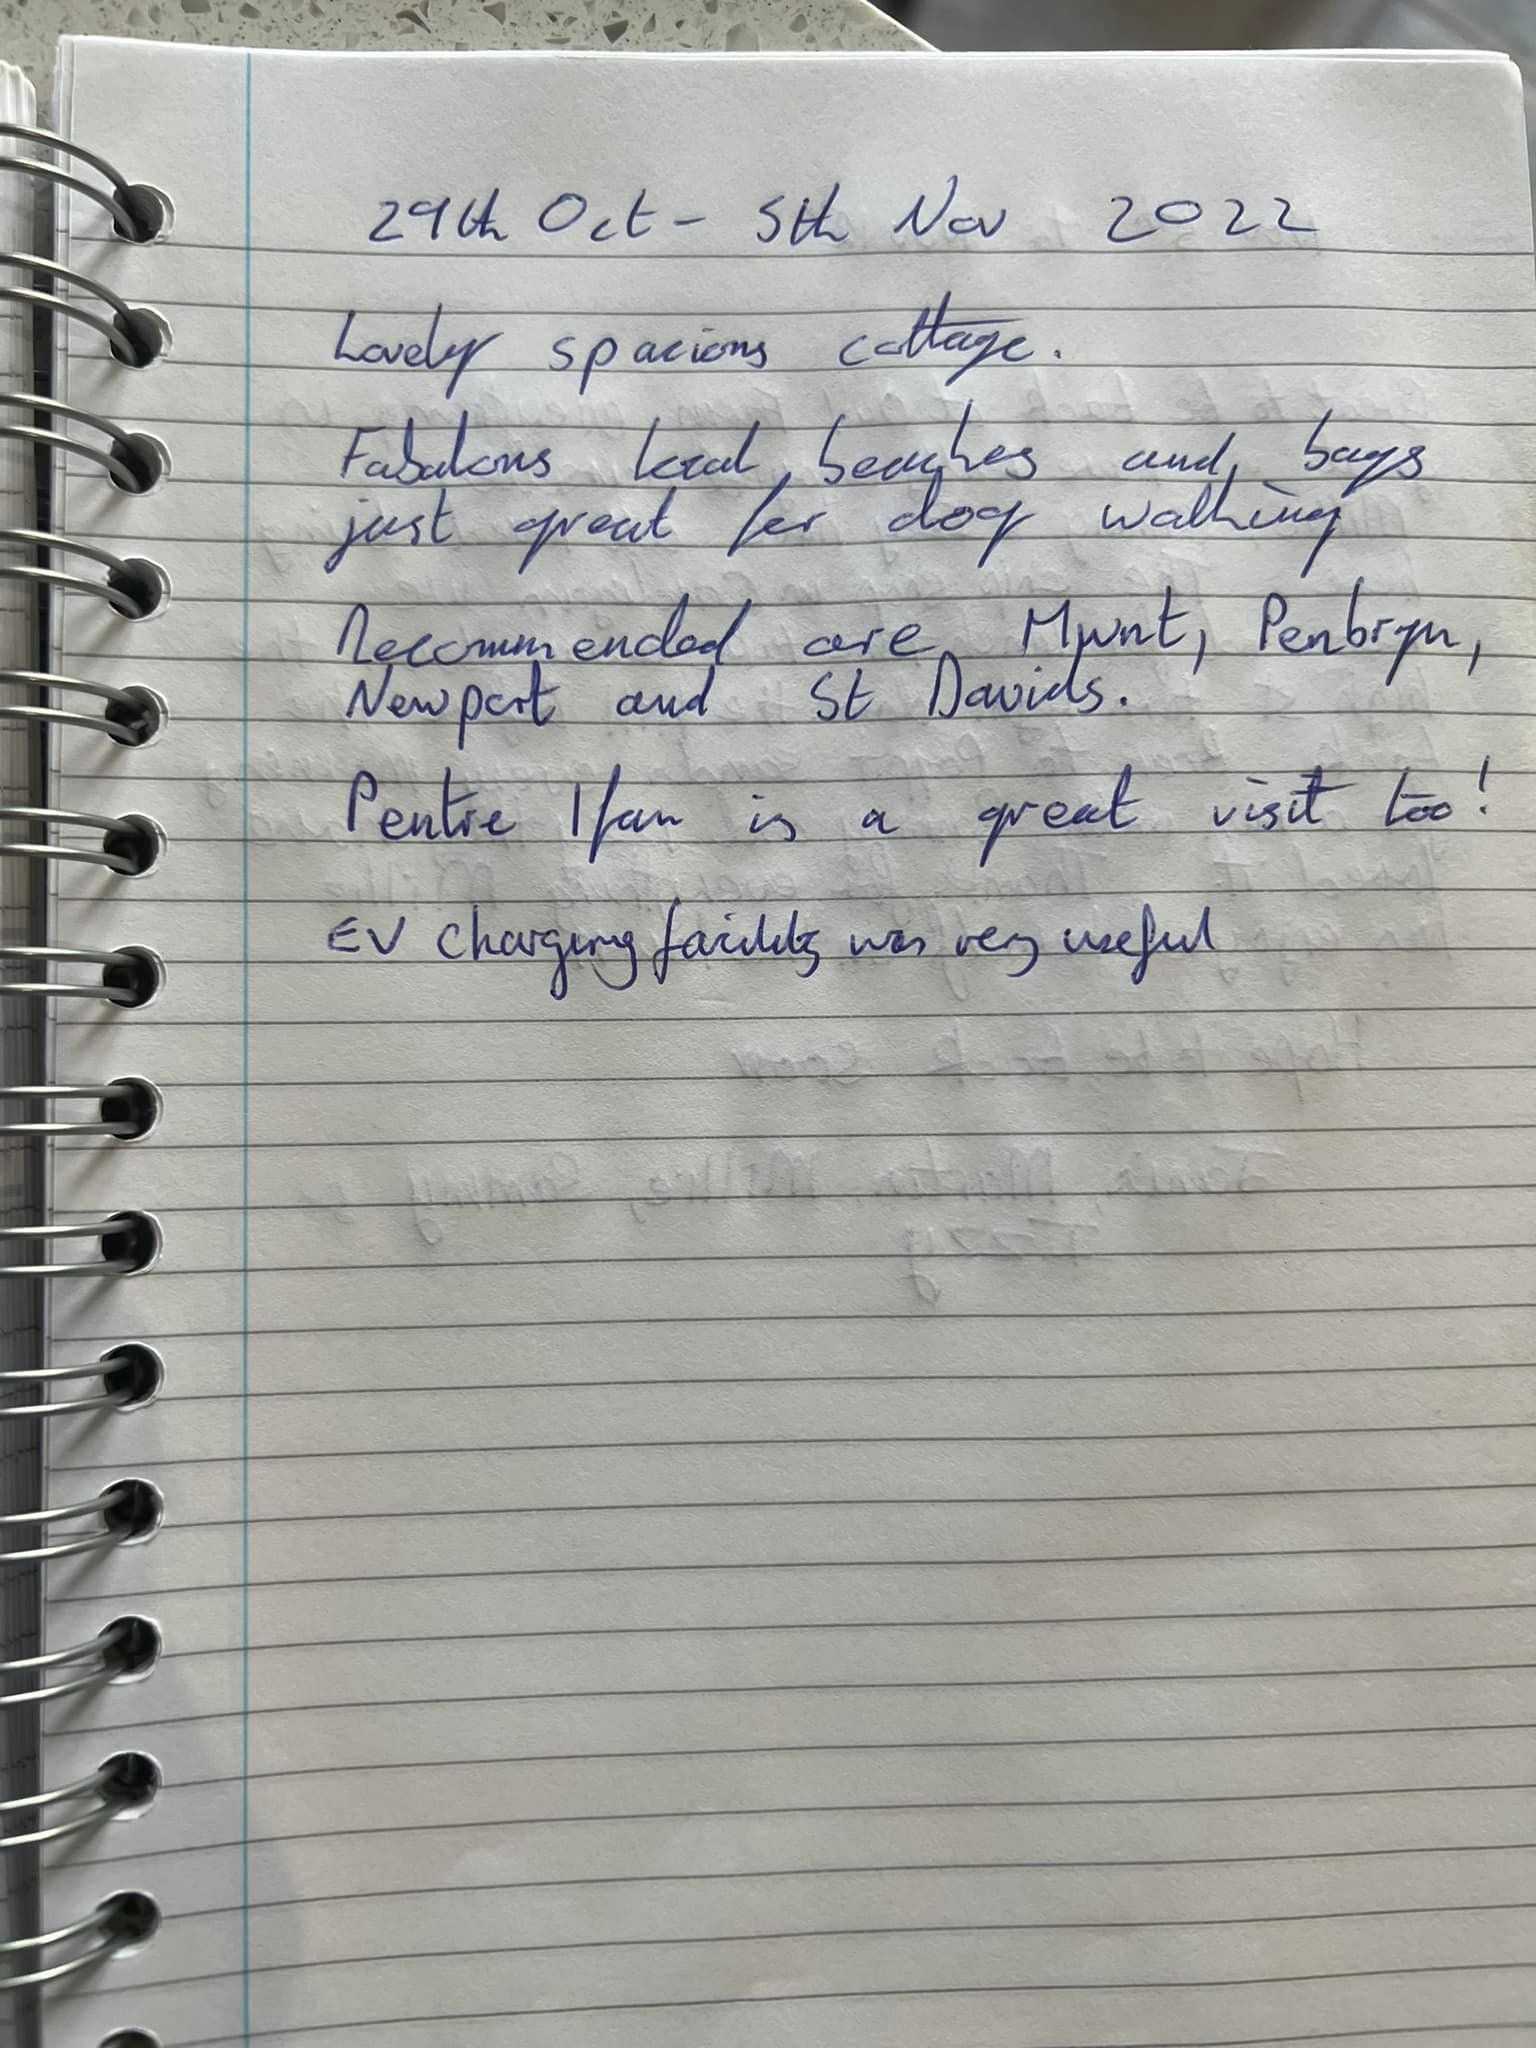 29th Oct - 5th Nov 2022
Lovely spacious cottage.
Fabulous local beaches and bays
just great for dog walking
Recommended are Mwnt, Penbryn,
Newport and St Davids.
Pentre Ifan is a great visit too!
EV charging facility was very useful